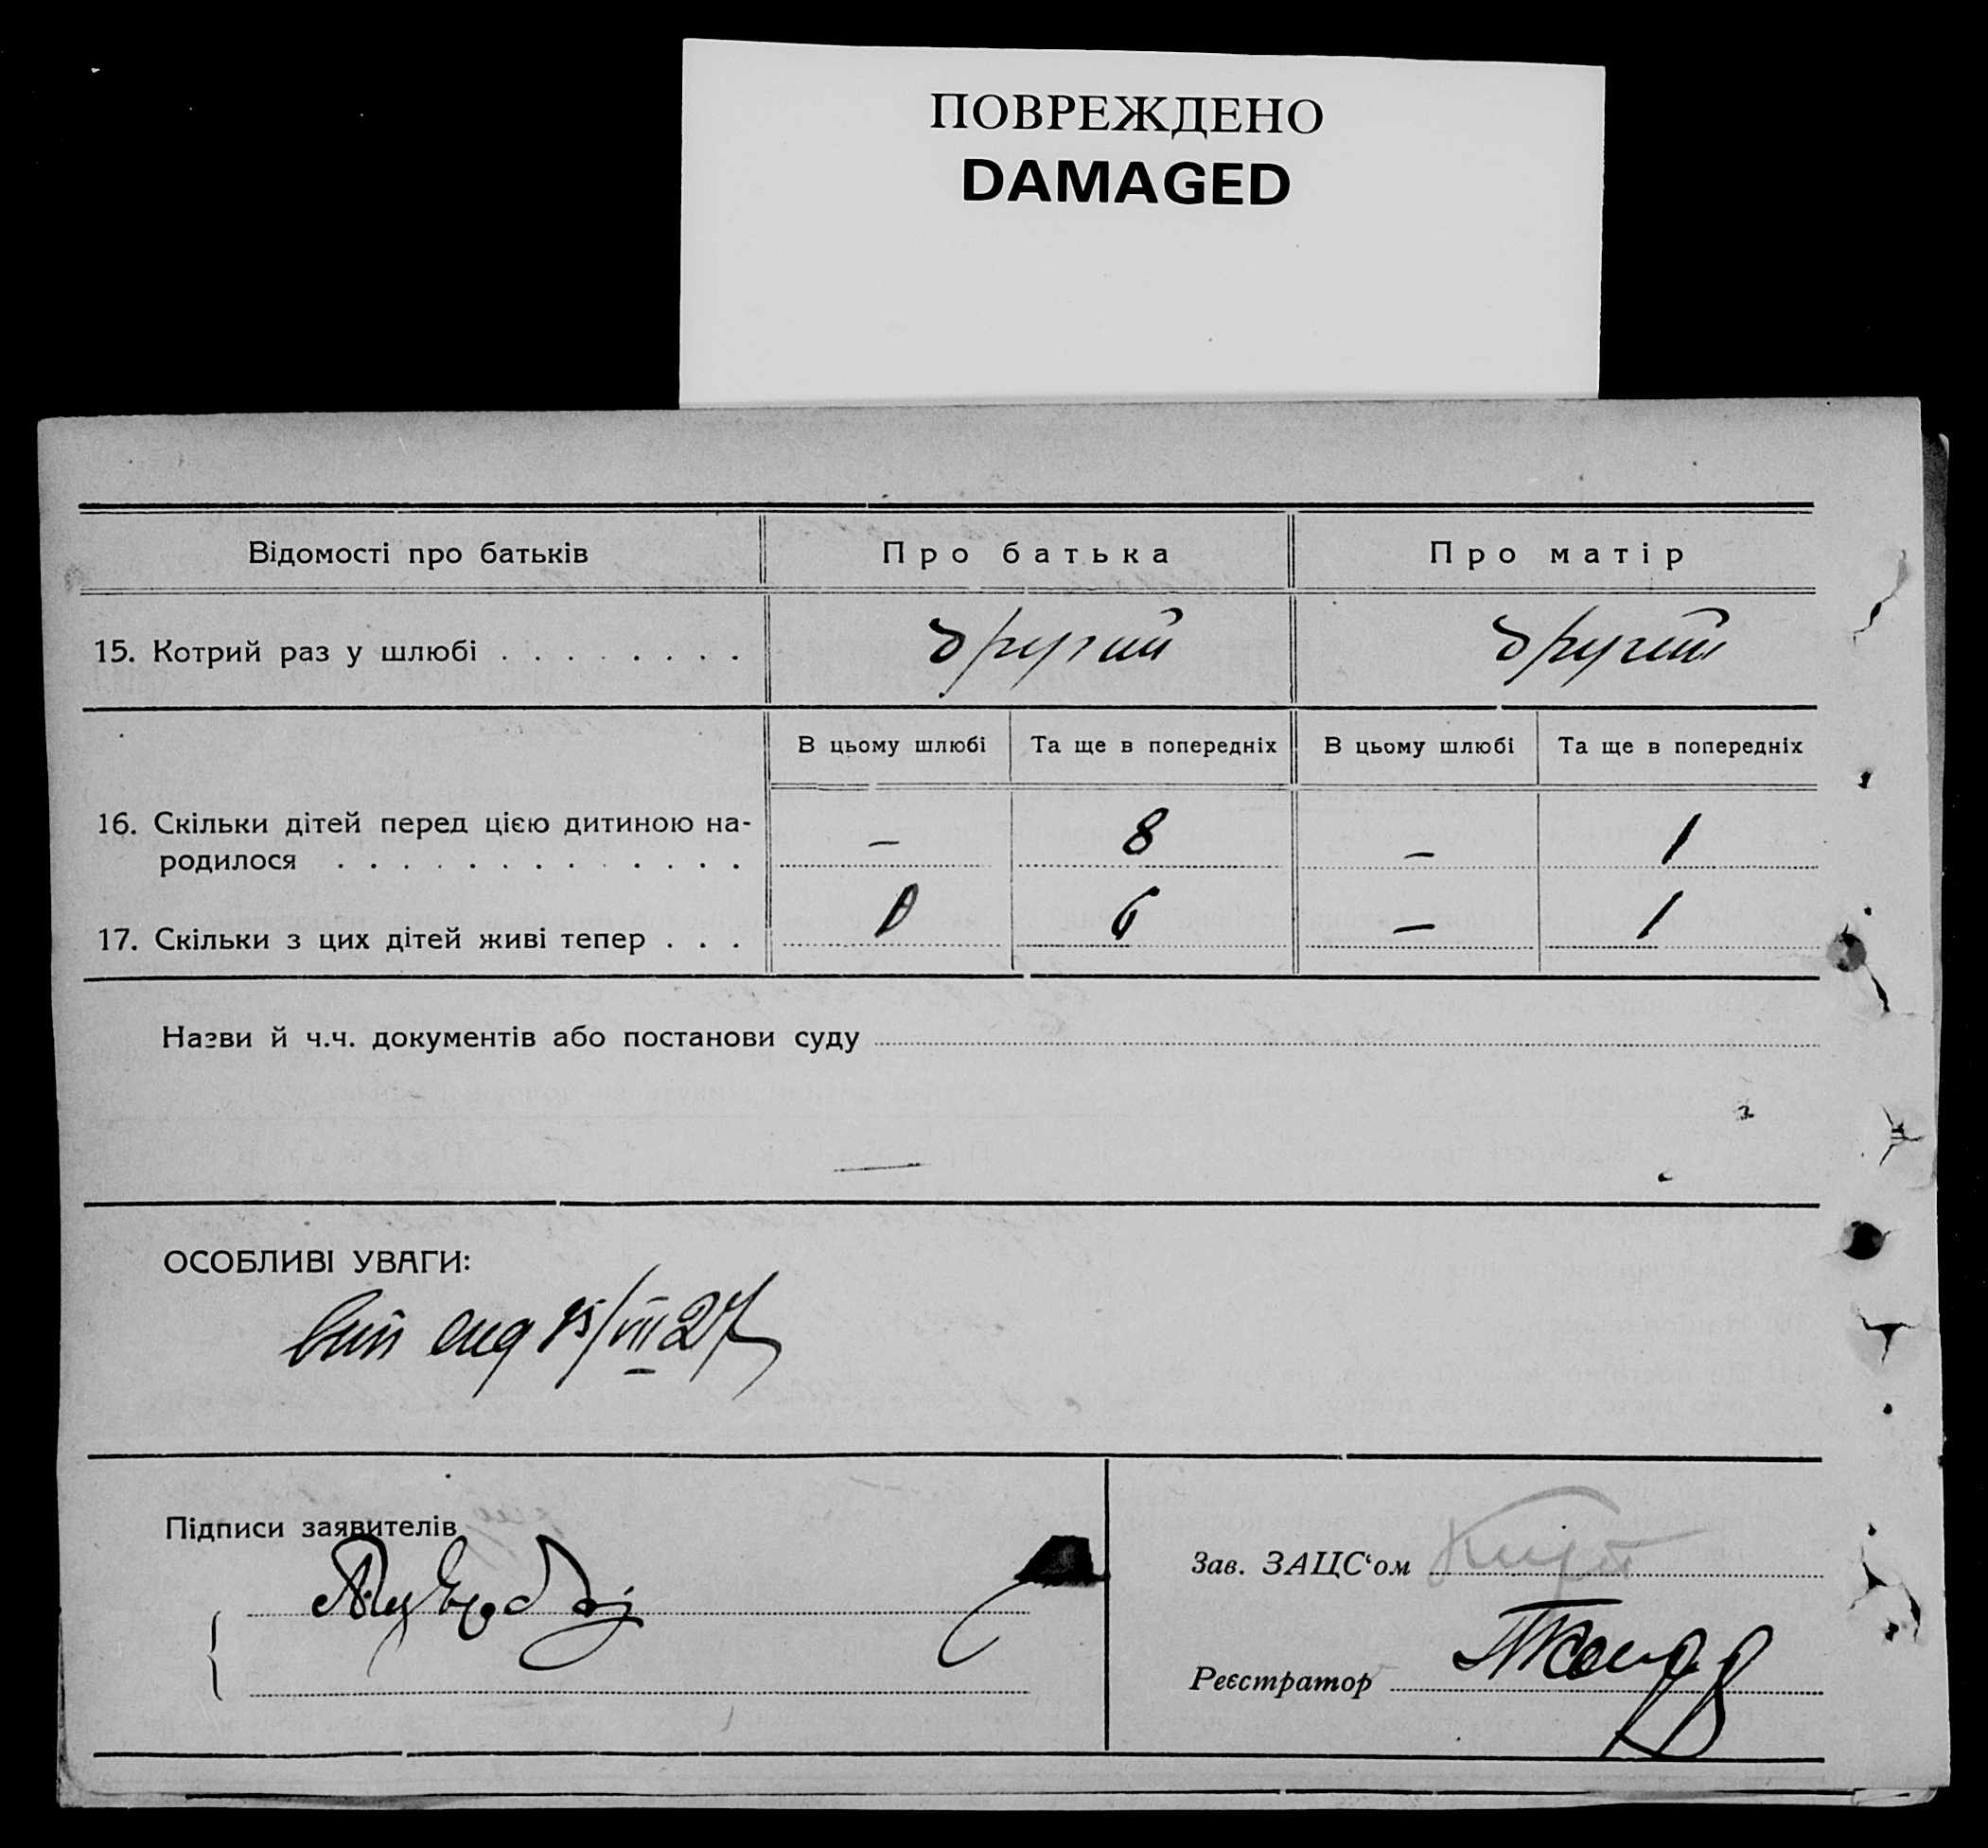 ПОВРЕЖДЕНО
DAMAGED
Відомості про батьків
Про батька
Про матір
15. Котрий раз у шлюбі
другий
другий
В цьому шлюбі
Та ще в попередніх
В цьому шлюбі
Та ще в попередніх
16. Скільки дітей перед цією дитиною на-
родилося
–
8
–
1
17. Скільки з цих дітей живі тепер
6
–
1
Назви й ч.ч. документів або постанови суду
—
ОСОБЛИВІ УВАГИ:
15/VIII 27
Підписи заявителів
Зав. ЗАЦС‘ом
Реєстратор